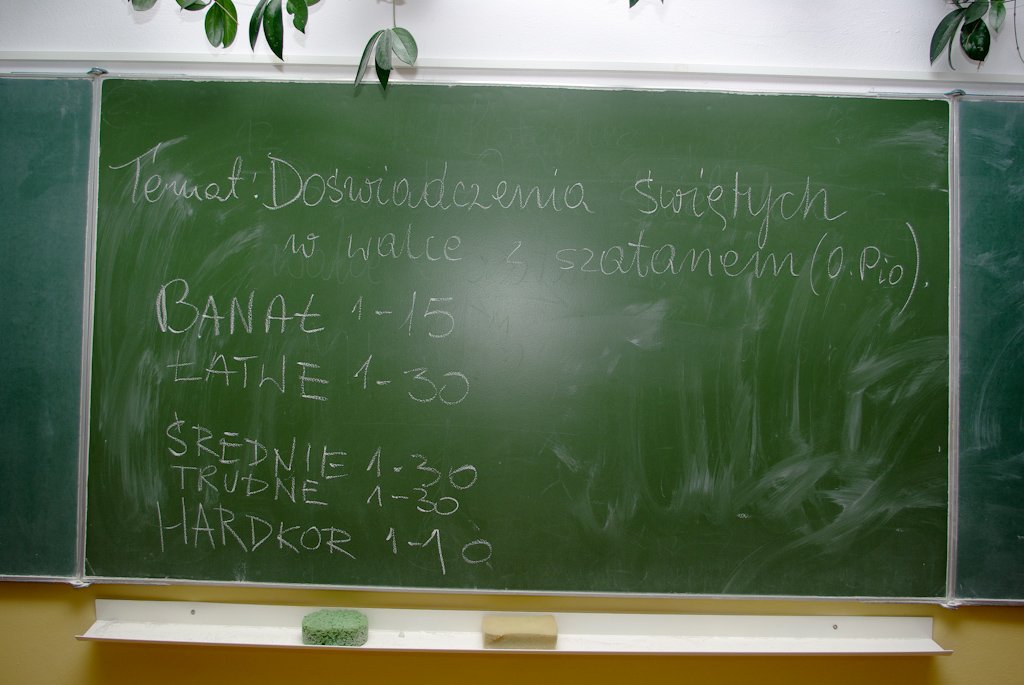 Temat: Doświadczenia świętych
w walce z szatanem (O. Pio).
BANAŁ 1-15
ŁATWE 1-30
ŚREDNIE 1-30
TRUDNE 1-30
HARDKOR 1-10